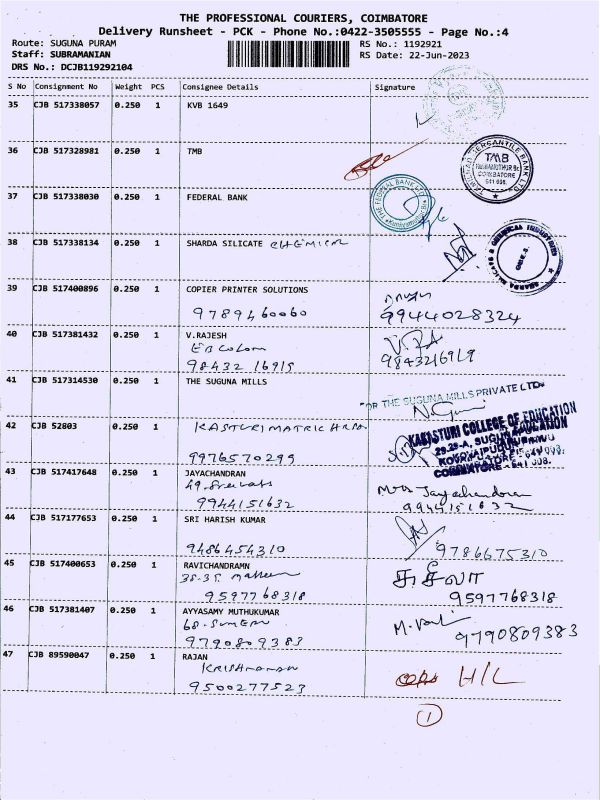 THE PROFESSIONAL COURIERS, COIMBATORE
Delivery Runsheet - PCK - Phone No.:0422-3505555 - Page No.:4
Route: SUGUNA PURAM RS No.: 1192921
Staff: SUBRAMANIAN RS Date: 22-Jun-2023
DRS No.: DCJB119292104
S No Consignment No Weight PCS Consignee Details Signature
35 CJB 517338057 0.250 1 KVB 1649
36 CJB 517328981 0.250 1 TMB
TMB
COIMBATORE
641 008.
37 CJB 517338030 0.250 1 FEDERAL BANK
THE FEDERAL BANK LTD
38 CJB 517338134 0.250 1 SHARDA SILICATE CHEMICAL
39 CJB 517400896 0.250 1 COPIER PRINTER SOLUTIONS
9789460060 9944028324
40 CJB 517381432 0.250 1 V.RAJESH
EB Colony
98432 16919 9843216919
41 CJB 517314530 0.250 1 THE SUGUNA MILLS
THE SUGUNA MILLS PRIVATE LTD
42 CJB 52803 0.250 1 KASTURI MATRIC
KASTURI COLLEGE OF EDUCATION
29-29-A,
COIMBATORE - 641 008.
9976570299
43 CJB 517417648 0.250 1 JAYACHANDRAN
49. Mrs Jayachandran
9944151632 9944151632
44 CJB 517177653 0.250 1 SRI HARISH KUMAR
9486454310 9786675310
45 CJB 517400653 0.250 1 RAVICHANDRAMN
38-35 சுசீலா
9597768318 9597768318
46 CJB 517381407 0.250 1 AYYASAMY MUTHUKUMAR
68. M.
9790809383 9790809383
47 CJB 89590047 0.250 1 RAJAN
KRISHNANAN H/L
9500277523
1